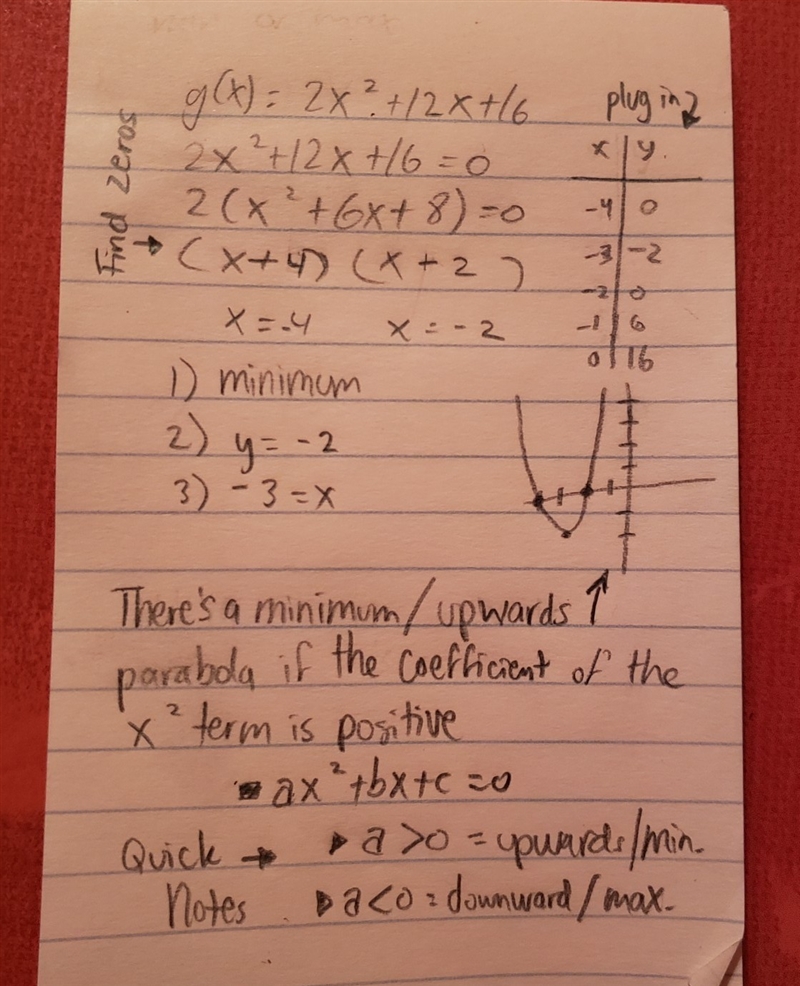 g(x) = 2x² + 12x + 16
2x² + 12x + 16 = 0
2(x² + 6x + 8) = 0
(x + 4) (x + 2)
x = -4 x = -2
Find zeros →
plug in
x | y
-4 | 0
-3 | -2
-2 | 0
-1 | 6
0 | 16
1) minimum
2) y = -2
3) -3 = x
There's a minimum/upwards ↑
parabola if the coefficient of the
x² term is positive
ax² + bx + c = 0
Quick → a > 0 = upwards/min.
Notes a < 0 = downward/max.